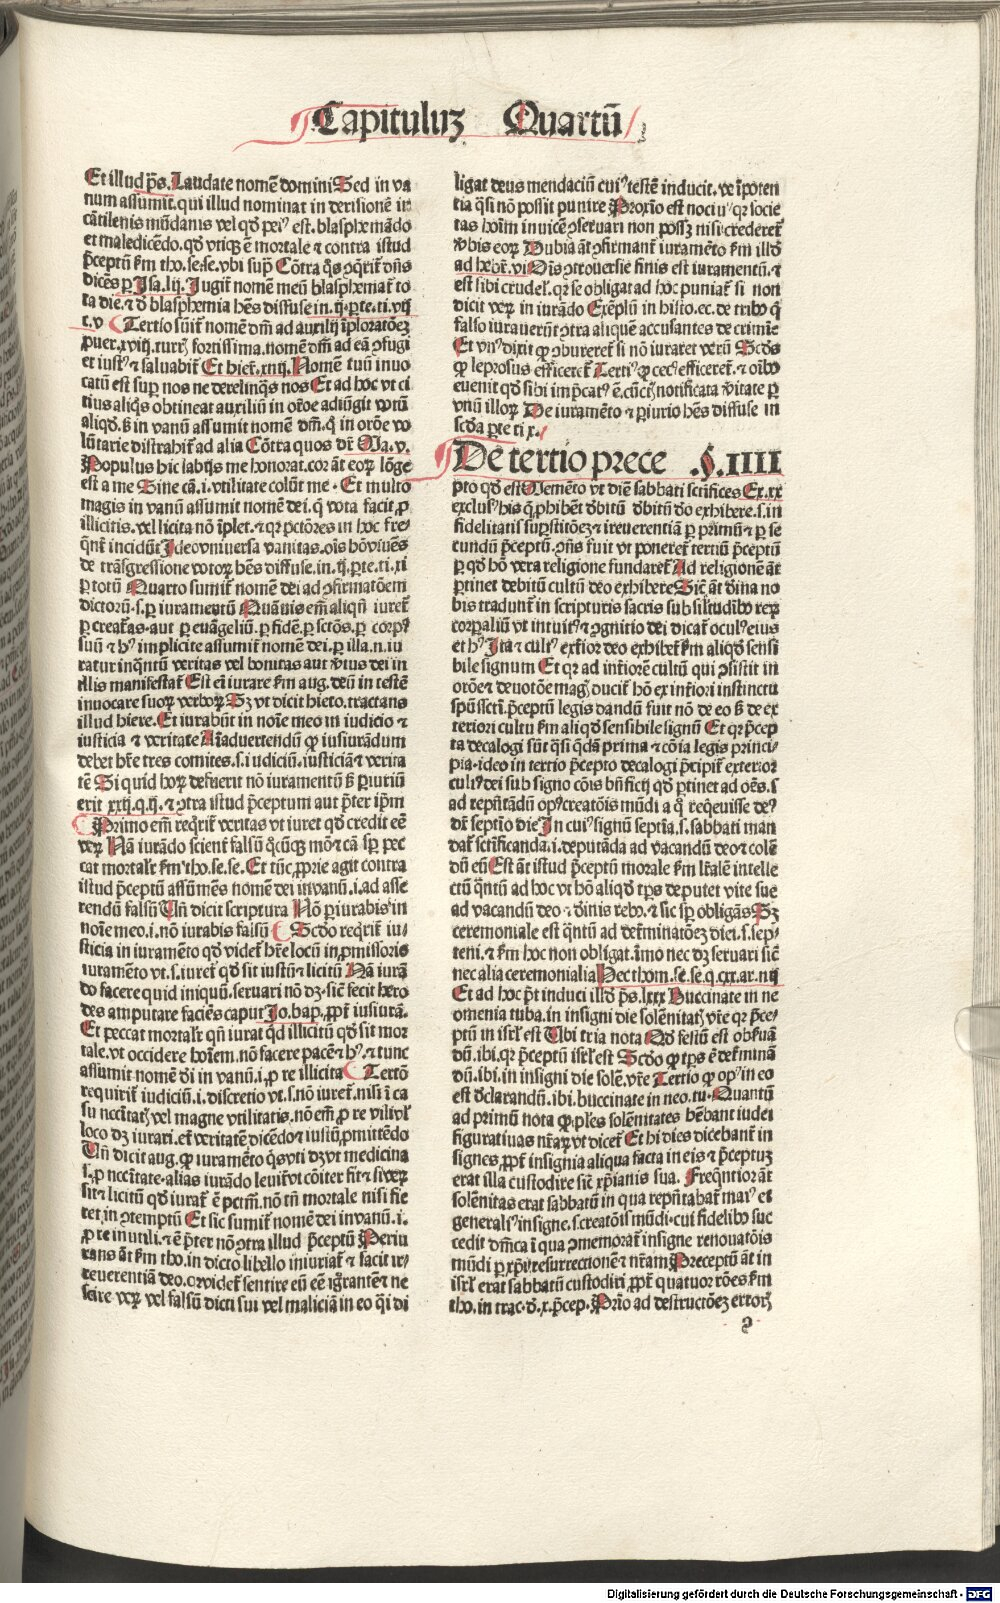 Capituluꝫ Quartū
Et illud p̄s. Laudate nomē domini Sed in va
num assumit. qui illud nominat in derisionē in
cātilenis mūdanis vel qđ peiꝰ est. blasphemādo
et maledicēdo. qđ vtiqꝫ ē mortale ⁊ contra istud
p̄ceptū ẜm tho. se. se. vbi supͣ Cōtra q̄s ꝯq̄rit᷑ dn̄s
dicēs ꝑ Isa. lij. Iugit᷑ nomē meū blasphemat᷑ to
ta die. ⁊ đ blasphemia hēs diffuse in. ij. ꝑte. ti. vij
c. v Tertio sūit᷑ nomē dn̄i ad auxilij īploratōeꝫ
ꝓuer. xviij. turrꝭ fortissima. nomē dn̄i ad eā ꝯfugi
et iustꝰ ⁊ saluabit᷑ Et hiet᷑. xiiij. Nomē tuū inuo
catū est suꝑ nos ne derelinq̄s nos Et ad hoc vt ci
tius aliq̄s obtineat auxiliū in orōe adiūgit votū
aliqđ. ẞ in vanū assumit nomē dn̄i. q̇ in orōe vo
lūtarie distrahit᷑ ad alia Cōtra quos dr̄ Ma. v.
Populus hic labijs me honorat. cor āt eoꝝ lōge
est a me Sine cā. i. vtilitate colūt me. Et multo
magis in vanū assumit nomē dei. q̇ vota facit ꝓ
illicitis. vel licita nō īplet. ⁊ qꝛ pctōres in hoc fre
q̄nt᷑ incidūt Ideo vniuersa vanitas. oīs hō viuēs
de trāsgressione votoꝝ hēs diffuse. in. ij. ꝑte. ti. xi
ꝑ totū Quarto sumit᷑ nomē dei ad ꝯfirmatōem
dictorū. s. ꝑ iuramentū Quāuis em̄ aliqn̄ iuret᷑
ꝑ creat᷑as. aut ꝑ euāgeliū. ꝑ fidē. ꝑ sctōs. ꝑ corpꝰ
suū ⁊ hꝰ implicite assumit᷑ nomē dei. ꝑ illa. n. iu
ratur inq̄ntū veritas vel bonitas aut v̄tus dei in
illis manifestat᷑ Est em̄ iurare ẜm aug. deū in testē
inuocare suoꝝ verboꝝ Sꝫ vt dicit hiero. tractans
illud hiere. Et iurabūt in noīe meo in iudicio ⁊
iusticia ⁊ veritate Aīaduertendū ꝙ iusiurādum
debet hr̄e tres comites. s. iudiciū. iusticiā ⁊ verita
tē Si quid hoꝝ defuerit nō iuramentū ẞ ꝑiuriū
erit xxij. q. ij. ⁊ ꝯtra istud p̄ceptum aut p̄ter ip̄m
Primo em̄ req̇rit᷑ veritas vt iuret qđ credit eē
veꝝ Nā iurādo scient᷑ falsū q̄cūqꝫ mō ⁊ cā sp̄ pec
cat mortalr̄ ẜm tho. se. se. Et tūc ꝓprie agit contra
istud p̄ceptū assūmēs nomē dei in vanū. i. ad asse
rendū falsū Vn̄ dicit scriptura Nō ꝑiurabis in
noīe meo. i. nō iurabis falsū Scđo req̇rit᷑ iu/
sticia in iuramēto qđ videt᷑ hr̄e locū in ꝓmissoris
iuramēto vt. s. iuret᷑ qđ sit iustū ⁊ licitū Nā iurā
do facere quid iniquū. seruari nō dꝫ. sic̄ fecit hero
des amputare faciēs caput Jo. bap. ꝓpt᷑ iusiurā.
Et peccat mortalr̄ qn̄ iurat qđ illicitū qđ sit mor
tale. vt occidere hoīem. nō facere pacē ⁊ hꝰ. ⁊ tunc
assumit nomē dī in vanū. i. ꝓ re illicita Tertō
requirit᷑ iudiciū. i. discretio vt. s. nō iuret᷑. nisi ī ca
su nccītatꝭ vel magne vtilitatis. nō em̄ ꝓ re vili vl̓
loco dꝫ iurari. et᷑ veritatē dicēdo ⁊ iustū ꝓmittēdo
Vn̄ dicit aug. ꝙ iuramēto q̄si vti dꝫ vt medicina
s. ꝓ nccītate. alias iurādo leuit᷑ vt cōiter fit ⁊ si veꝝ
sit ⁊ licitū qđ iurat᷑ ē pctm̄. nō tn̄ mortale nisi fie
ret in ꝯtemptū Et sic sumit᷑ nomē dei in vanū. i.
ꝓ re inutili. ⁊ ē p̄ter nō ꝯtra illud p̄ceptū Periu
rans āt ẜm tho. in dicto libello iniuriat᷑ ⁊ facit ir/
reuerentiā deo. qꝛ videt᷑ sentire eū eē ig̓rantē ⁊ ne
scire veꝝ vel falsū dicti sui vel maliciā in eo q̇ di
ligat deus mendaciū cuiꝰ testē inducit. vē īpoten
tia q̄si nō possit punire Proxīo est nociuꝰ qꝛ socie
tas hoīm inuicē ꝯseruari non possꝫ nisi crederet᷑
v̄bis eoꝝ Dubia āt ꝯfirmant᷑ iuramēto ẜm illđ
ad hebr̄. vi Oīs ꝯtrouersie finis est iuramentū. ⁊
est sibi crudel̓. qꝛ se obligat ad hoc puniat᷑ si non
dicit veꝝ in iurādo Exēplū in histo. ec. de tribꝰ q̇
falso iurauerūt ꝯtra aliquē accusantes de crimīe
Et vnꝰ dixit ꝙ ꝯbureret᷑ si nō iuraret verū Scđs
ꝙ leprosus efficeret᷑ Tertiꝰ ꝙ cecꝰ efficeret᷑. ⁊ oībꝰ
euenit qđ sibi imp̄catꝰ ē. cūctꝭ notificata v̄itate ꝑ
vnū illoꝝ De iuramēto ⁊ ꝑiurio hēs diffuse in
scđa ꝑte ti x.
De tertio prece .§. IIII
pto qđ est Memēto vt diē sabbati sctifices Ex. xx
exclusꝰ his q̄ ꝓhibēt đbitū đbitū đo exhibere. s. in
fidelitatis suꝑstitōeꝫ ⁊ ireuerentiā ꝑ primū ⁊ ꝑ se
cundū p̄ceptū ꝯn̄s fuit vt poneret᷑ tertiū p̄ceptū
ꝑ qđ hō vera religione fundaret᷑ Ad religionē āt
ꝑtinet debitū cultū deo exhibere Sic̄ āt diuina no
bis tradunt᷑ in scripturis sacris sub sil̓itudībꝰ reꝝ
corꝑaliū vt intuitꝰ ⁊ ꝯgnitio dei dicat᷑ oculꝰ eius
et hꝰ Ita ⁊ cultꝰ ext᷑ior deo exhibet᷑ ẜm aliqđ sensi
bile signum Et qꝛ ad int᷑iorē cultū qui ꝯsistit in
orōe ⁊ deuotōe magꝭ ducit᷑ hō ex int᷑iori instinctu
spūssct̄i. p̄ceptū legis dandū fuit nō de eo ẞ de ex
teriori cultu ẜm aliqđ sensibile signū Et qꝛ p̄cep
ta decalogi sūt q̄si q̄dā prima ⁊ cōia legis princi/
pia. ideo in tertio p̄cepto decalogi p̄cipit᷑ exterior
cultꝰ dei sub signo cōis bn̄ficij qđ ꝑtinet ad oēs. s
ad repn̄tādū opꝰ creatōis mūdi a q̇ reqeuisse deꝰ
dr̄ septīo die In cuiꝰ signū septīa. s. sabbati man
dat᷑ sctificanda. i. deputāda ad vacandū deo ⁊ colē
dū eū Est āt istud p̄ceptū morale ẜm lr̄alē intelle
ctū q̄ntū ad hoc vt hō aliqđ tp̄s deputet vite sue
ad vacandū deo ⁊ đinis rebꝰ. ⁊ sic sp̄ obligās Sꝫ
ceremoniale est q̄ntū ad det᷑minatōeꝫ diei. s. sep/
teni. ⁊ ẜm hoc non obligat. īmo nec dꝫ seruari sic̄
nec alia ceremonialia Hec thom. se. se. q. cxx. ar. iiij
Et ad hoc p̄t induci illđ p̄s. lxxx Buccinate in ne
omenia tuba. in insigni die solēnitatꝭ vr̄e qꝛ p̄ce/
ptū in isrl̓ est Vbi tria nota Qđ festū est obẜua
dū. ibi. qꝛ p̄ceptū isrl̓ est Scđo ꝙ tp̄s ē det᷑minā
dū. ibi. in insigni die solē. vr̄e Tertio ꝙ opꝰ in eo
est đclarandū. ibi. buccinate in neo. tu. Quantū
ad primū nota ꝙ ples solēnitates hēbant iudei
figuratiuas nr̄aꝝ vt dicet᷑ Et hi dies dicebant᷑ in
signes ꝓpt᷑ insignia aliqua facta in eis ⁊ p̄ceptuꝫ
erat illa custodire sic̄ xp̄ianis sua. Freq̄ntior āt
solēnitas erat sabbatū in qua repn̄tabat᷑ maiꝰ et
generalꝰ insigne. s. creatōis mūdi. cui fidelibꝰ suc
cedit dn̄ica ī qua ꝯmemorat᷑ insigne renouatōis
mūdi ꝑ xp̄i resurrectionē ⁊ nr̄am Preceptū āt in
isrl̓ erat sabbatū custodiri ꝓpt᷑ quatuor rōes ẜm
tho. in trac. đ. x. p̄cep. Prīo ad destructōeꝫ errorꝭ
Digitalisierung gefördert durch die Deutsche Forschungsgemeinschaft - DFG